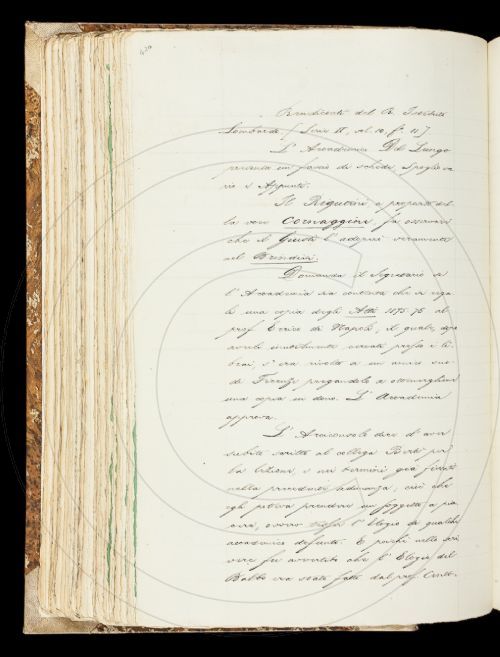 430
Rendiconti del R. Istituto
Lombardo [Serie II, vol. 10. f. 11].
L'Accademico Del Lungo
presenta un fascio di schede, Spoglio va-
rio e Appunti.
Il Rigutini a proposito del-
la voce Coraggioso fa osservare
che il Giusti l'adoperò veramente
nel Brindisi.
Domanda il Segretario se
l'Accademia sia contenta che si rega-
li una copia degli Atti 1875-76 al
prof. Errico di Napoli, il quale, dopo
averli inutilmente cercati presso i li-
brai, s'era rivolto a un amico suo
di Firenze pregandolo a ottenergliene
una copia in dono. L'Accademia
approva.
L'Arciconsolo dice di aver
subito scritto al collega Berti per
la lezione e nei termini già fissati
nella precedente adunanza; cioè che
egli poteva prendere un soggetto a pia-
cere, ovvero l'Elogio di qualche
accademico defunto. E poiché nello scri-
vere fu avvertito che l'Elogio del
Balbo era stato fatto dal prof. Conti-